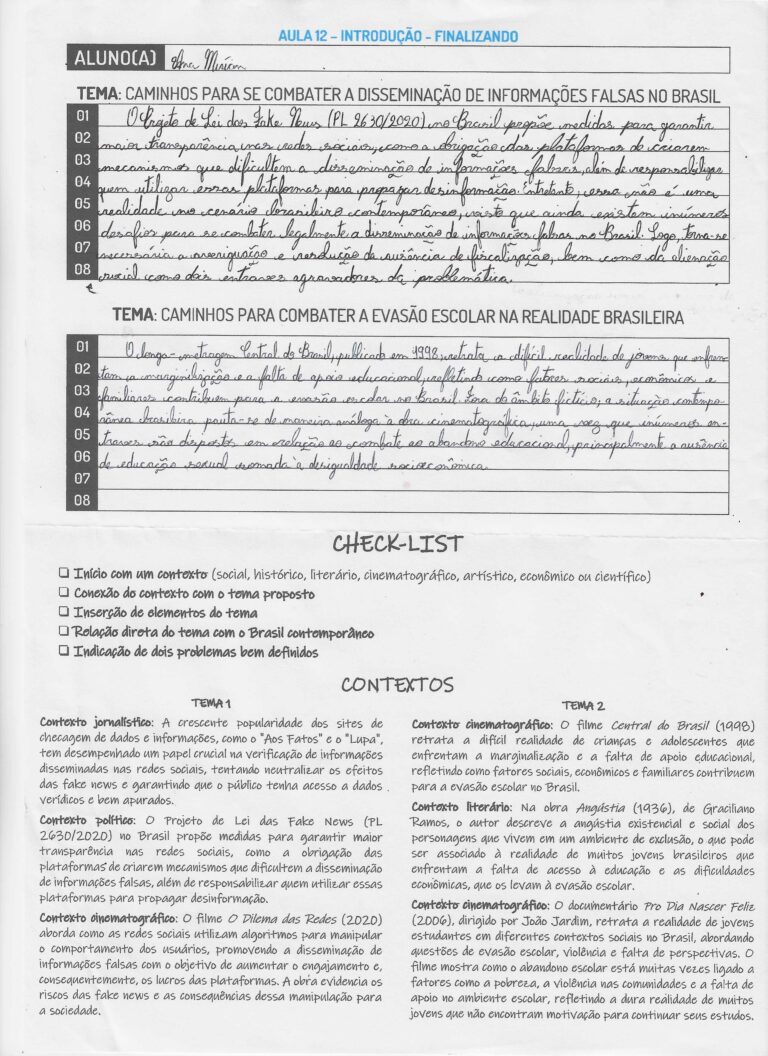 AULA 12 – INTRODUÇÃO - FINALIZANDO
ALUNO(A) Ana Miriam
TEMA: CAMINHOS PARA SE COMBATER A DISSEMINAÇÃO DE INFORMAÇÕES FALSAS NO BRASIL
01 O Projeto de Lei das Fake News (PL 2630/2020) no Brasil propõe medidas para garantir
02 maior transparência nas redes sociais, como a obrigação das plataformas de criarem
03 mecanismos que dificultem a disseminação de informações falsas, além de responsabilizar
04 quem utilizar essas plataformas para propagar desinformação. Entretanto, essa não é uma
05 realidade no cenário brasileiro contemporâneo, visto que ainda existam inúmeros
06 desafios para se combater legalmente a disseminação de informações falsas no Brasil. Logo, torna-se
07 necessária a averiguação e resolução da ausência de fiscalização, bem como da alienação
08 social como dois entraves agravadores da problemática.
TEMA: CAMINHOS PARA COMBATER A EVASÃO ESCOLAR NA REALIDADE BRASILEIRA
01 O longa-metragem Central do Brasil, publicado em 1998, retrata a difícil realidade de jovens que enfren-
02 tam a marginalização e a falta de apoio educacional, refletindo como fatores sociais, econômicos e
03 familiares contribuem para a evasão escolar no Brasil. Fora do âmbito fictício, a situação contempo-
04 rânea brasileira pauta-se de maneira análoga à obra cinematográfica, uma vez que inúmeros en-
05 traves são dispostos em relação ao combate ao abandono educacional, principalmente a ausência
06 de educação sexual somada à desigualdade socioeconômica.
07
08
CHECK-LIST
❏ Início com um contexto (social, histórico, literário, cinematográfico, artístico, econômico ou científico)
❏ Conexão do contexto com o tema proposto
❏ Inserção de elementos do tema
❏ Relação direta do tema com o Brasil contemporâneo
❏ Indicação de dois problemas bem definidos
CONTEXTOS
TEMA 1
Contexto jornalístico: A crescente popularidade dos sites de
checagem de dados e informações, como o "Aos Fatos" e o "Lupa",
tem desempenhado um papel crucial na verificação de informações
disseminadas nas redes sociais, tentando neutralizar os efeitos
das fake news e garantindo que o público tenha acesso a dados
verídicos e bem apurados.
Contexto político: O Projeto de Lei das Fake News (PL
2630/2020) no Brasil propõe medidas para garantir maior
transparência nas redes sociais, como a obrigação das
plataformas de criarem mecanismos que dificultem a disseminação
de informações falsas, além de responsabilizar quem utilizar essas
plataformas para propagar desinformação.
Contexto cinematográfico: O filme O Dilema das Redes (2020)
aborda como as redes sociais utilizam algoritmos para manipular
o comportamento dos usuários, promovendo a disseminação de
informações falsas com o objetivo de aumentar o engajamento e,
consequentemente, os lucros das plataformas. A obra evidencia os
riscos das fake news e as consequências dessa manipulação para
a sociedade.
TEMA 2
Contexto cinematográfico: O filme Central do Brasil (1998)
retrata a difícil realidade de crianças e adolescentes que
enfrentam a marginalização e a falta de apoio educacional,
refletindo como fatores sociais, econômicos e familiares contribuem
para a evasão escolar no Brasil.
Contexto literário: Na obra Angústia (1936), de Graciliano
Ramos, o autor descreve a angústia existencial e social dos
personagens que vivem em um ambiente de exclusão, o que pode
ser associado à realidade de muitos jovens brasileiros que
enfrentam a falta de acesso à educação e as dificuldades
econômicas, que os levam à evasão escolar.
Contexto cinematográfico: O documentário Pro Dia Nascer Feliz
(2006), dirigido por João Jardim, retrata a realidade de jovens
estudantes em diferentes contextos sociais no Brasil, abordando
questões de evasão escolar, violência e falta de perspectivas. O
filme mostra como o abandono escolar está muitas vezes ligado a
fatores como a pobreza, a violência nas comunidades e a falta de
apoio no ambiente escolar, refletindo a dura realidade de muitos
jovens que não encontram motivação para continuar seus estudos.